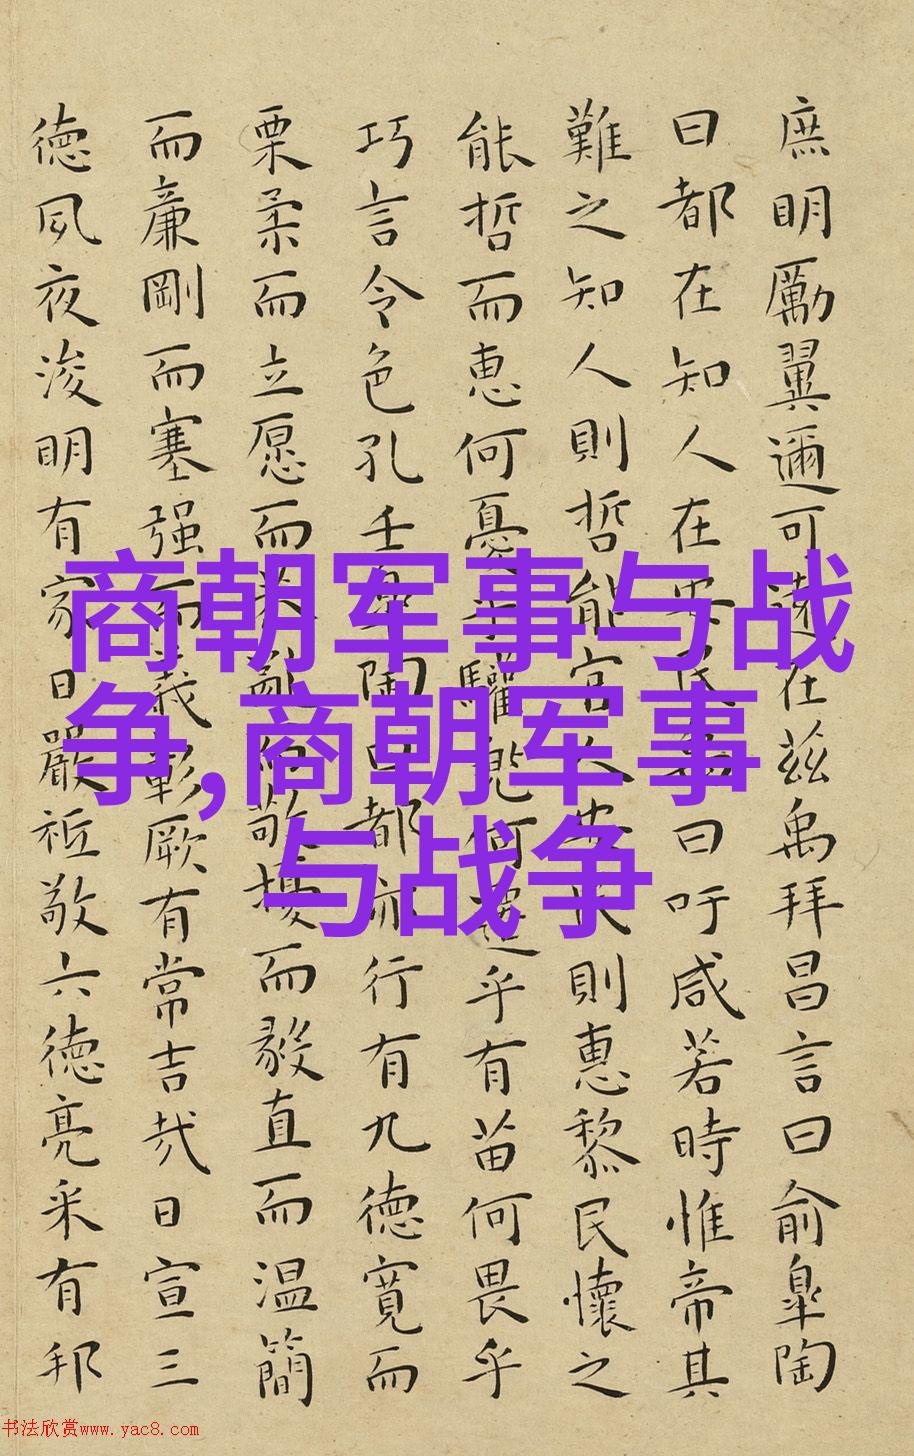 庶明勵翼邇可遠在兹禹拜昌言曰俞皐陶
曰都在知人在安民禹曰吁咸若時惟帝其
難之知人則哲能官人安民則惠黎民懷之
能哲而惠何憂乎驩兜何遷乎有苗何畏乎
巧言令色孔壬皐陶曰都亦行有九德寛而
栗柔而立愿而恭亂而敬擾而毅直而温簡
而廉剛而塞强而義彰厥有常吉哉日宣三
德夙夜浚明有家日嚴祗敬六德亮采有邦
商朝军事与战
争,商朝军事
与战争
书法欣赏www.yac8.com